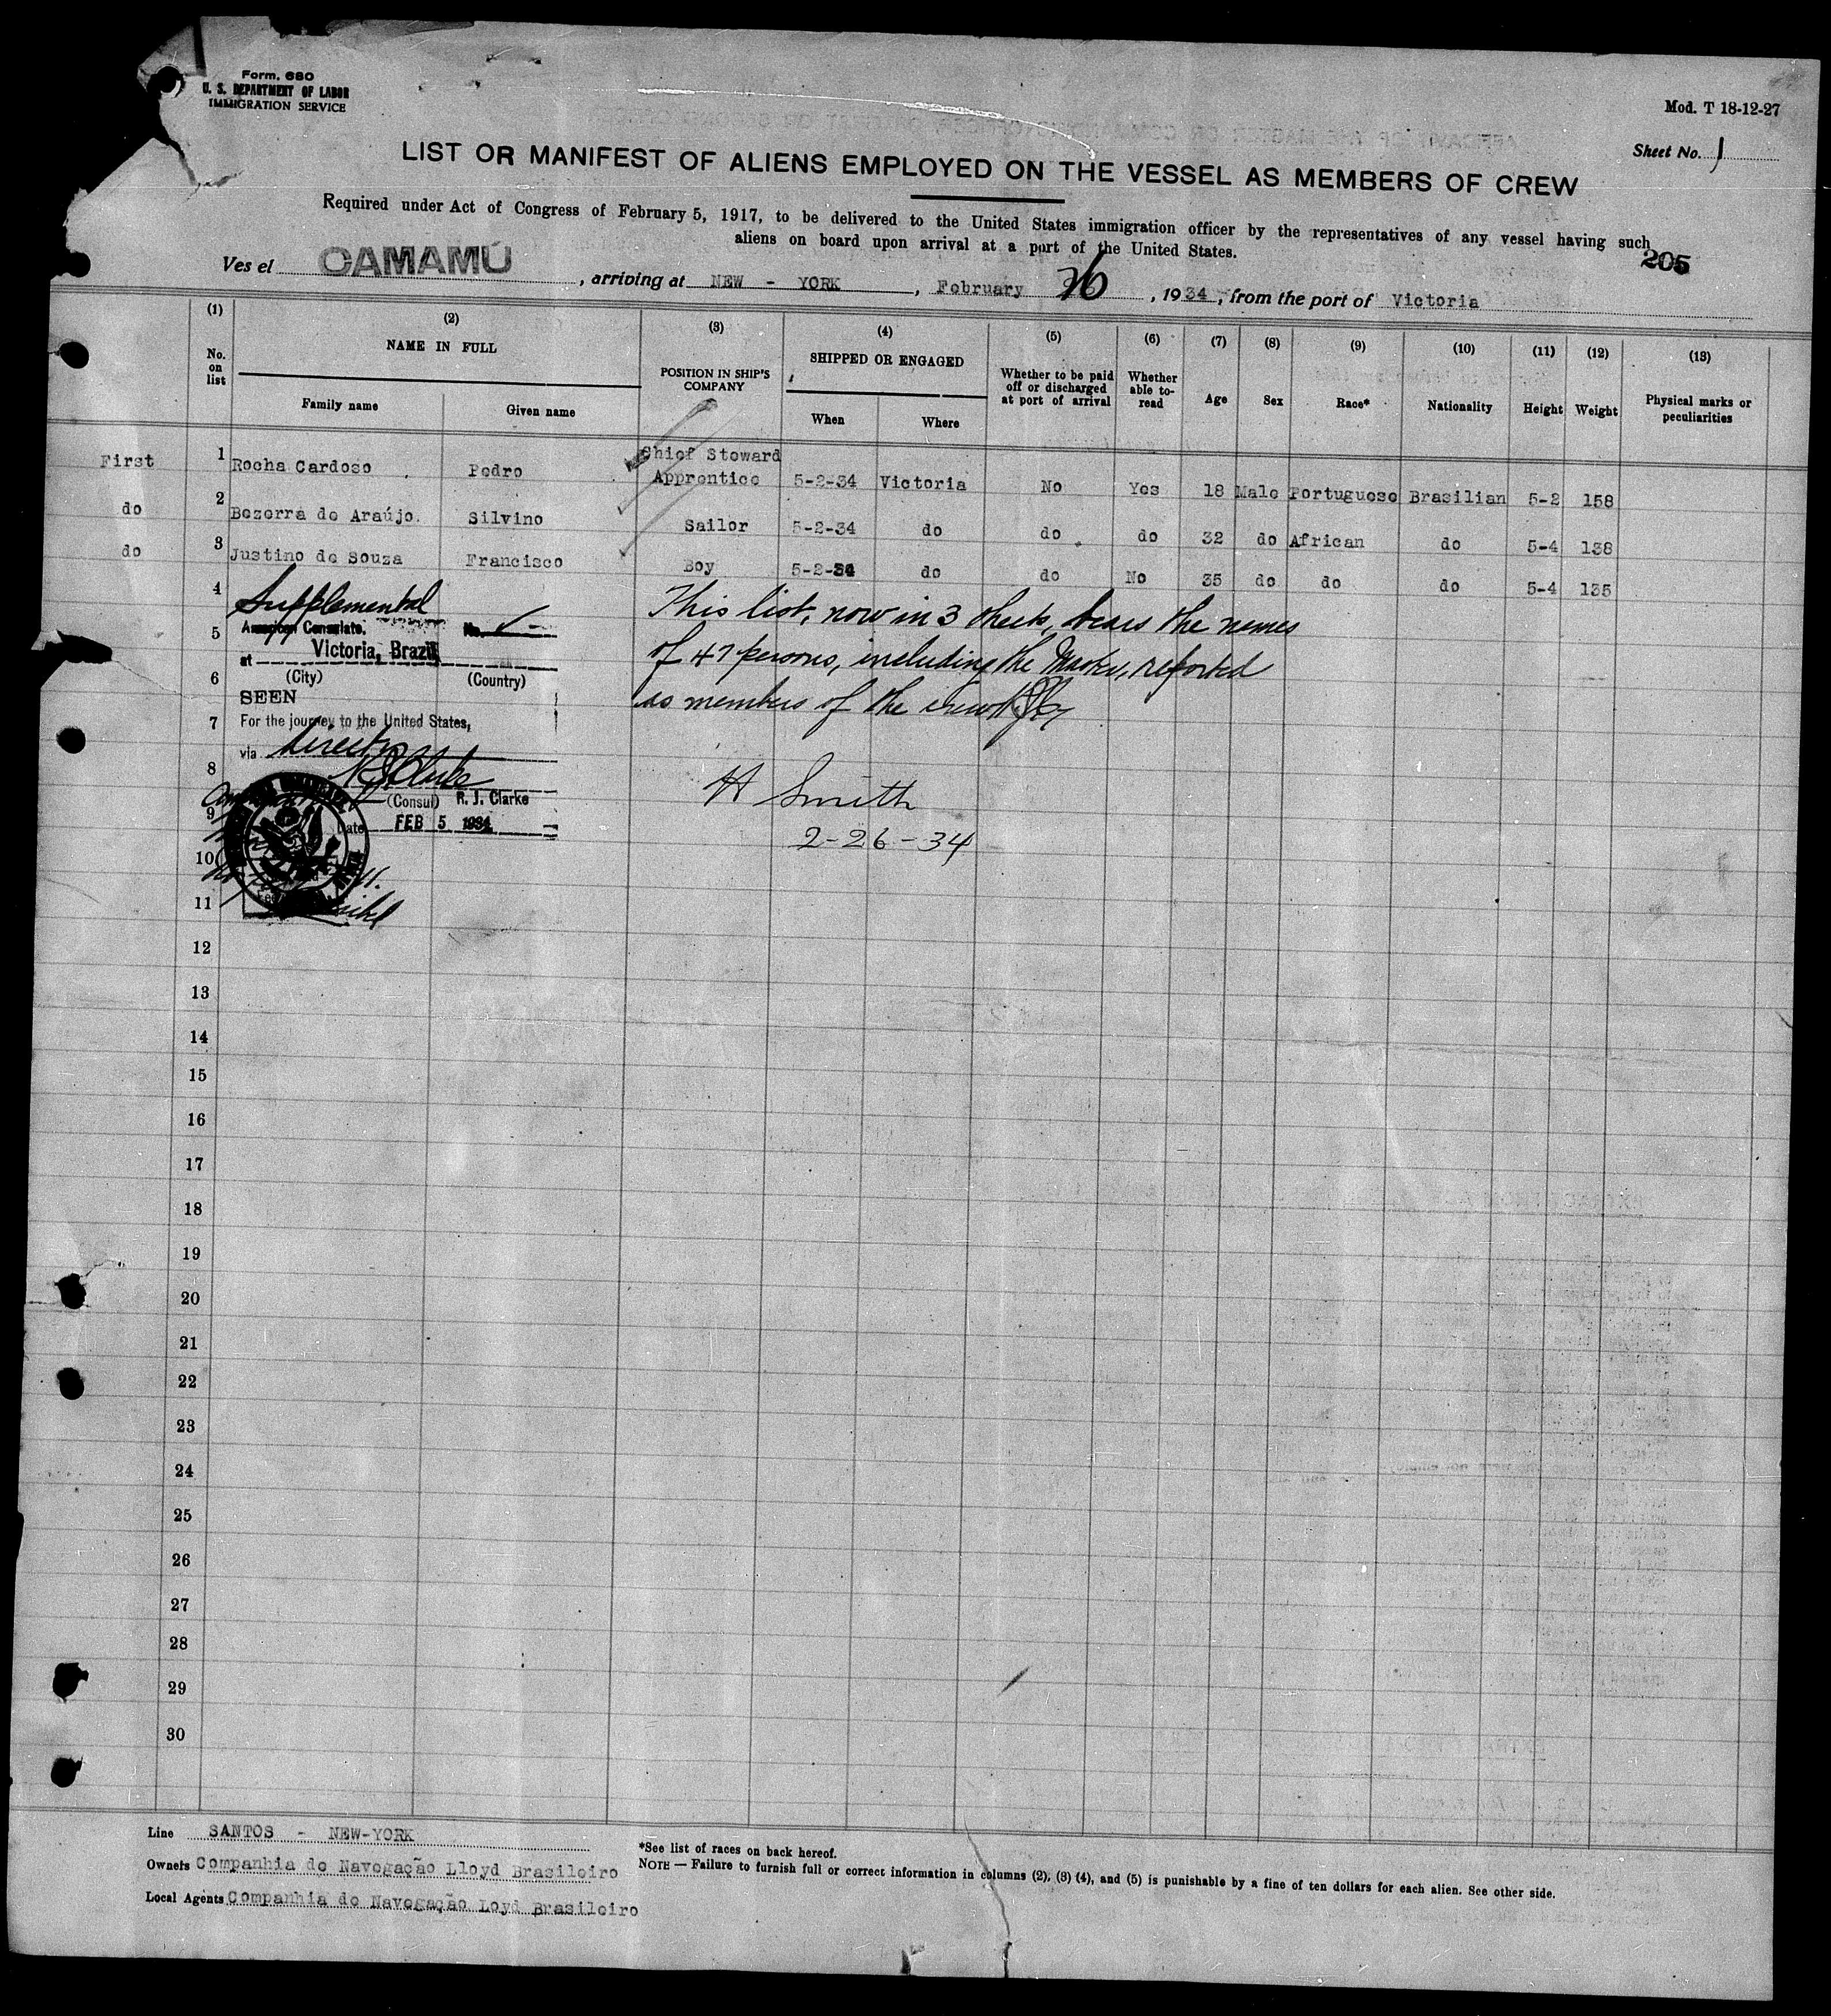 Form. 680
U. S. DEPARTMENT OF LABOR
IMMIGRATION SERVICE
Mod. T 18-12-27
Sheet No. 1
LIST OR MANIFEST OF ALIENS EMPLOYED ON THE VESSEL AS MEMBERS OF CREW
Required under Act of Congress of February 5, 1917, to be delivered to the United States immigration officer by the representatives of any vessel having such
aliens on board upon arrival at a port of the United States.
205
Ves el CAMAMÚ , arriving at NEW - YORK , February 26 , 1934 , from the port of Victoria
(1) (2) (3) (4) (5) (6) (7) (8) (9) (10) (11) (12) (13)
No. on list
NAME IN FULL
Family name
Given name
POSITION IN SHIP'S COMPANY
SHIPPED OR ENGAGED
When
Where
Whether to be paid off or discharged at port of arrival
Whether able to- read
Age
Sex
Race*
Nationality
Height
Weight
Physical marks or peculiarities
First 1 Rocha Cardoso Pedro Chief Steward Apprentice 5-2-34 Victoria No Yes 18 Male Portuguese Brasilian 5-2 158
do 2 Bezerra de Araújo. Silvino Sailor 5-2-34 do do do 32 do African do 5-4 138
do 3 Justino de Souza Francisco Boy 5-2-34 do do No 35 do do do 5-4 135
4
Supplemental
This list, now in 3 sheets, bears the names
5
American Consulate. No.
of 47 persons, including the Master, reported
at Victoria, Brazil
6
(City) (Country)
as members of the crew
SEEN
7
For the journey to the United States,
via direct
8
R J Clarke
H Smith
(Consul) R. J. Clarke
9
Date FEB 5 1934
2-26-34
10
11
12
13
14
15
16
17
18
19
20
21
22
23
24
25
26
27
28
29
30
Line SANTOS - NEW-YORK
Owners Companhia de Navegação Lloyd Brasileiro
Local Agents Companhia de Navegação Loyd Brasileiro
*See list of races on back hereof.
NOTE — Failure to furnish full or correct information in columns (2), (3) (4), and (5) is punishable by a fine of ten dollars for each alien. See other side.